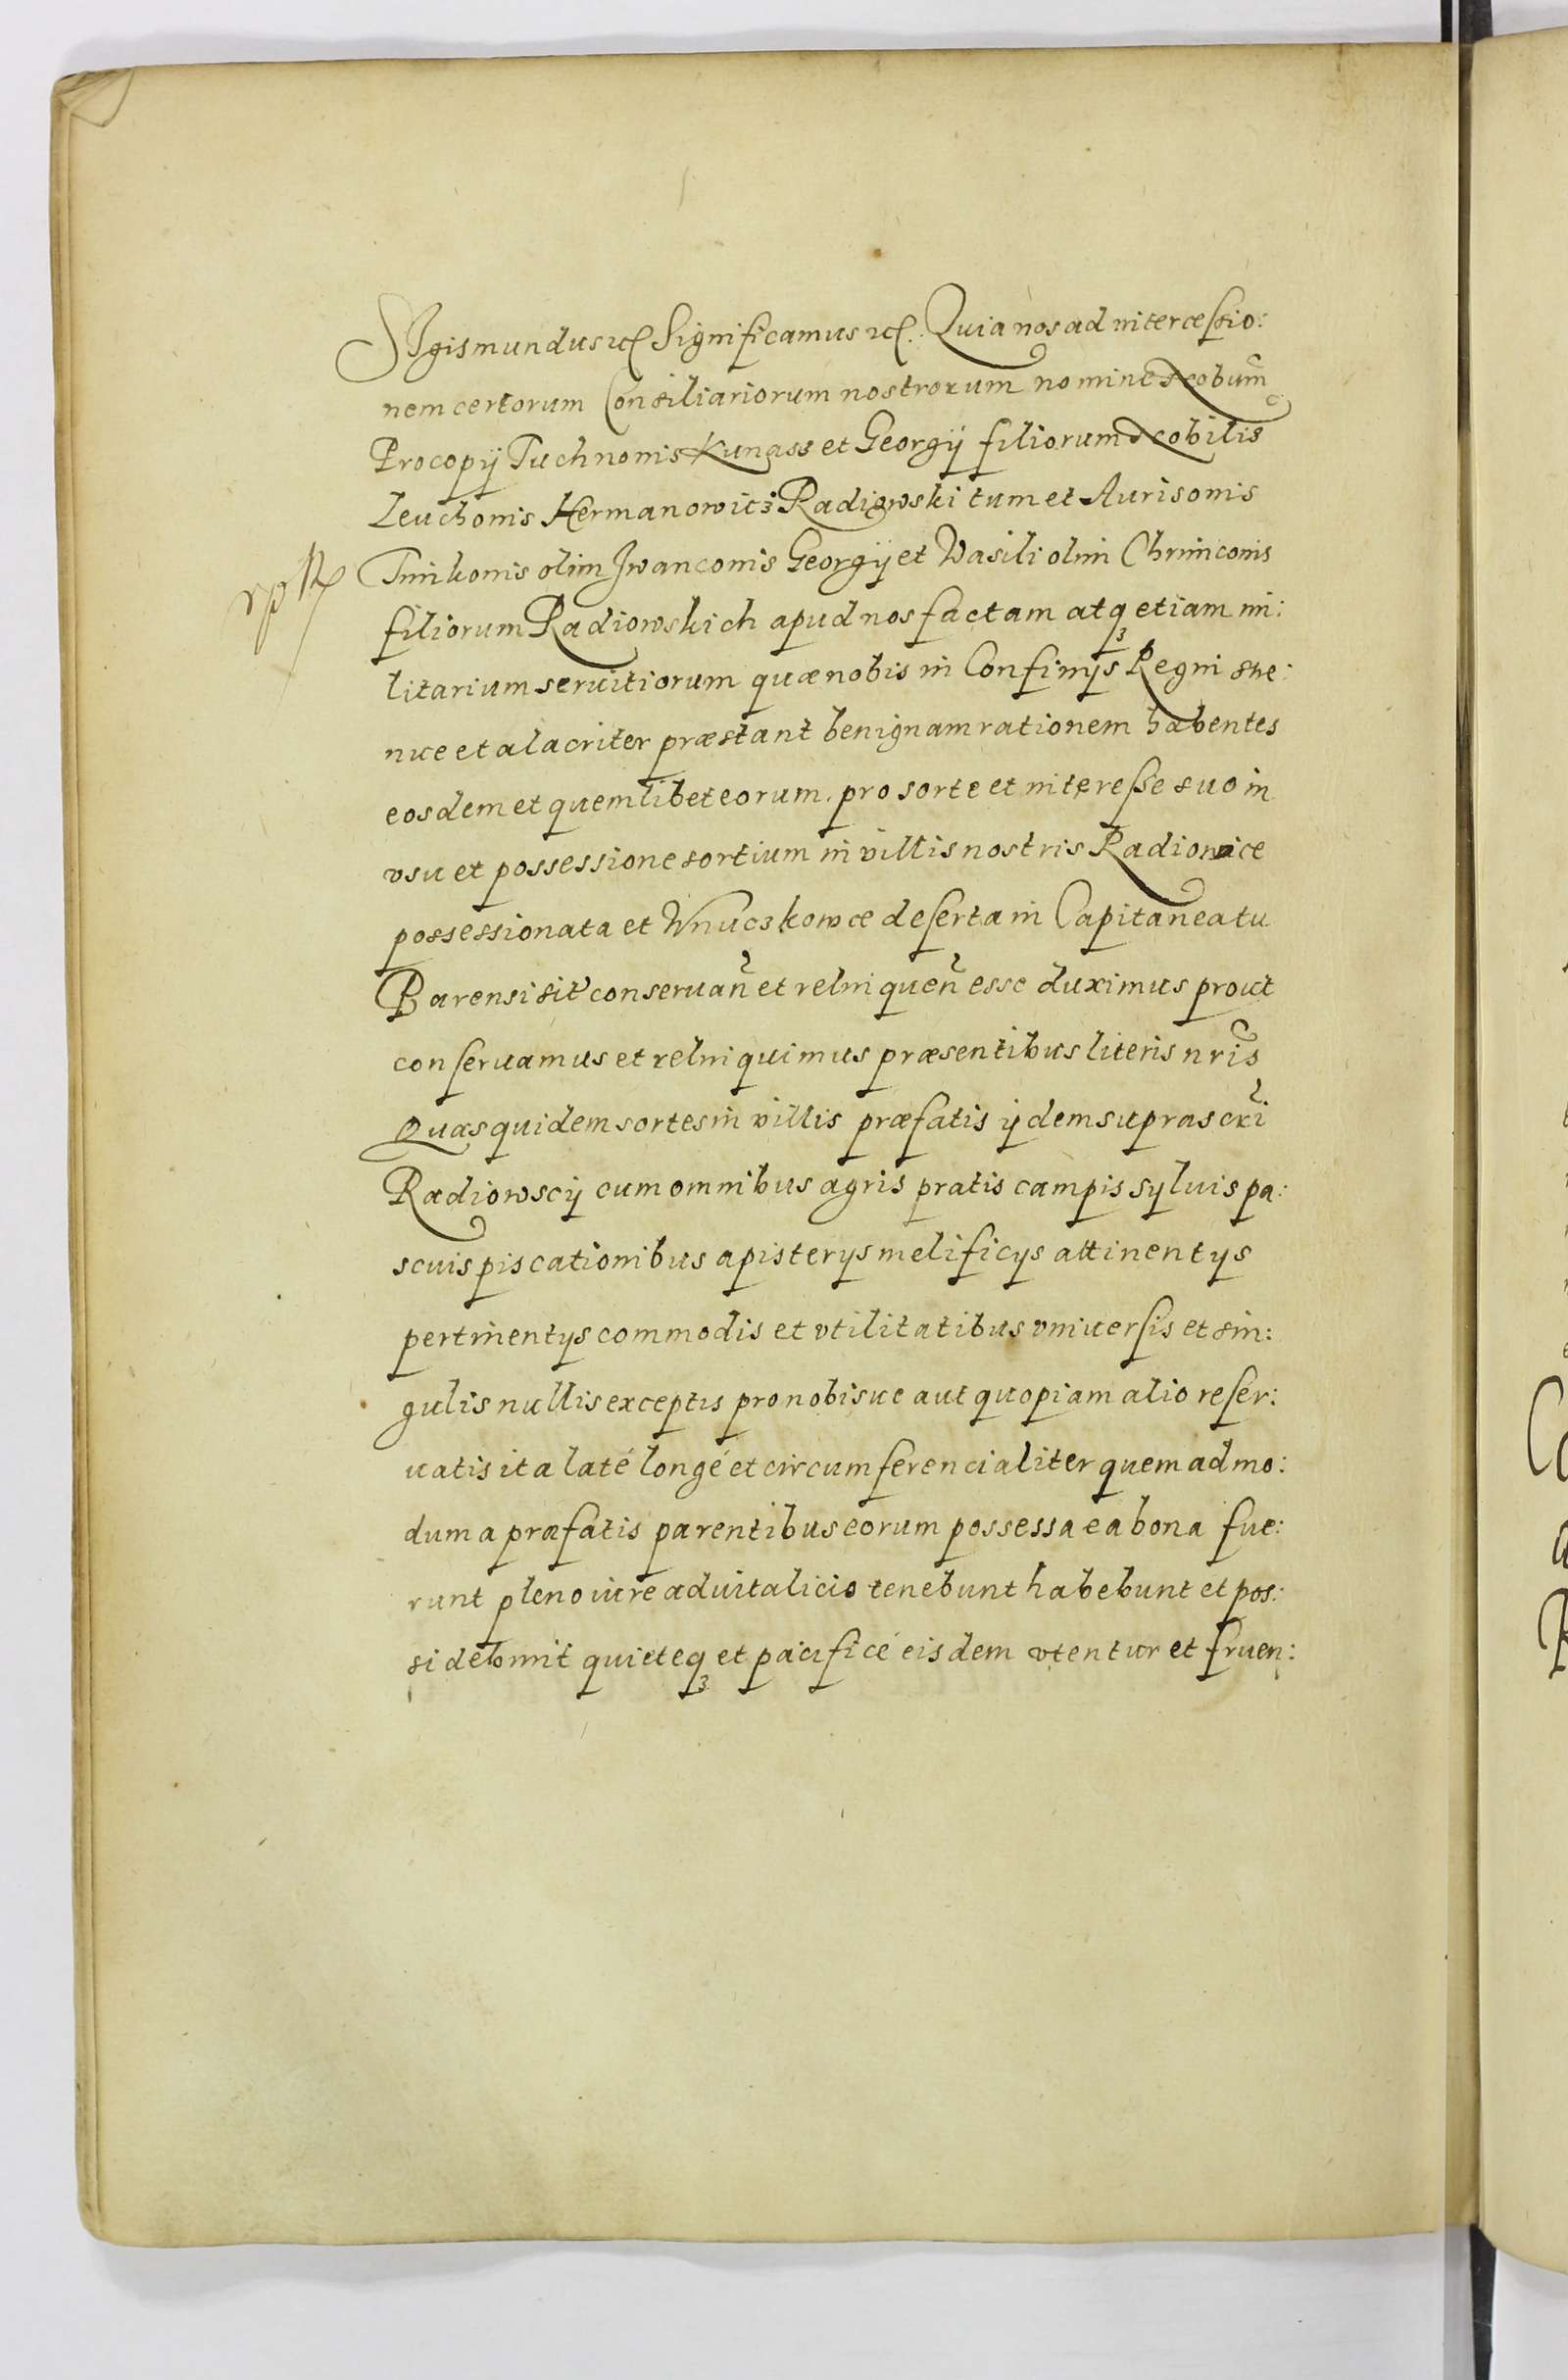 SIgismundus etc Significamus etc. Quia nos ad intercessio:
nem certorum Consiliariorum nostrorum nomine Nobilium
Procopij Tuchnonis Kunass et Georgij filiorum Nobilis
Leuchonis Hermanowicz Radiowski tum et Aurisonis
Timkonis olim Iwanconis Georgij et Wasili olim Chrinconis
filiorum Radiowskich apud nos factam atq3 etiam mi:
litarium seruitiorum quæ nobis in Confinijs Regni stre:
nue et alacriter præstant benignam rationem habentes
eosdem et quemlibet eorum pro sorte et interesse suo in
vsu et possessione sortium in villis nostris Radiowce
possessionata et Wnuczkowce deserta in Capitaneatu
Barensi sit conseruan̄ et relinquen̄ esse duximus prout
conseruamus et relinquimus præsentibus literis nr̄is
Quas quidem sortes in villis præfatis ijdem suprascr̄i
Radiowscij cum omnibus agris pratis campis syluis pa:
scuis piscationibus apisterijs melificijs attinentijs
pertinentijs commodis et vtilitatibus vniuersis et sin:
gulis nullis exceptis pro nobisue aut quopiam alio reser:
uatis ita laté longé et circumferencialiter quemadmo:
dum a præfatis parentibus eorum possessa ea bona fue:
runt pleno iure aduitalicio tenebunt habebunt et pos:
sidebunt quieteq3 et pacificé eisdem vtentur et fruen: